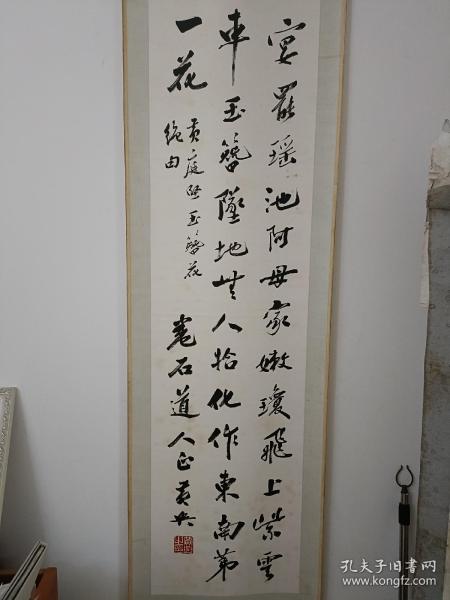 宴罷瑶池阿母家嫩瓊飛上紫雲
車玉簪墜地無人拾化作東南第
一花
黄庭堅玉簪花
石道人
孔夫子旧书网
www.kongfz.com